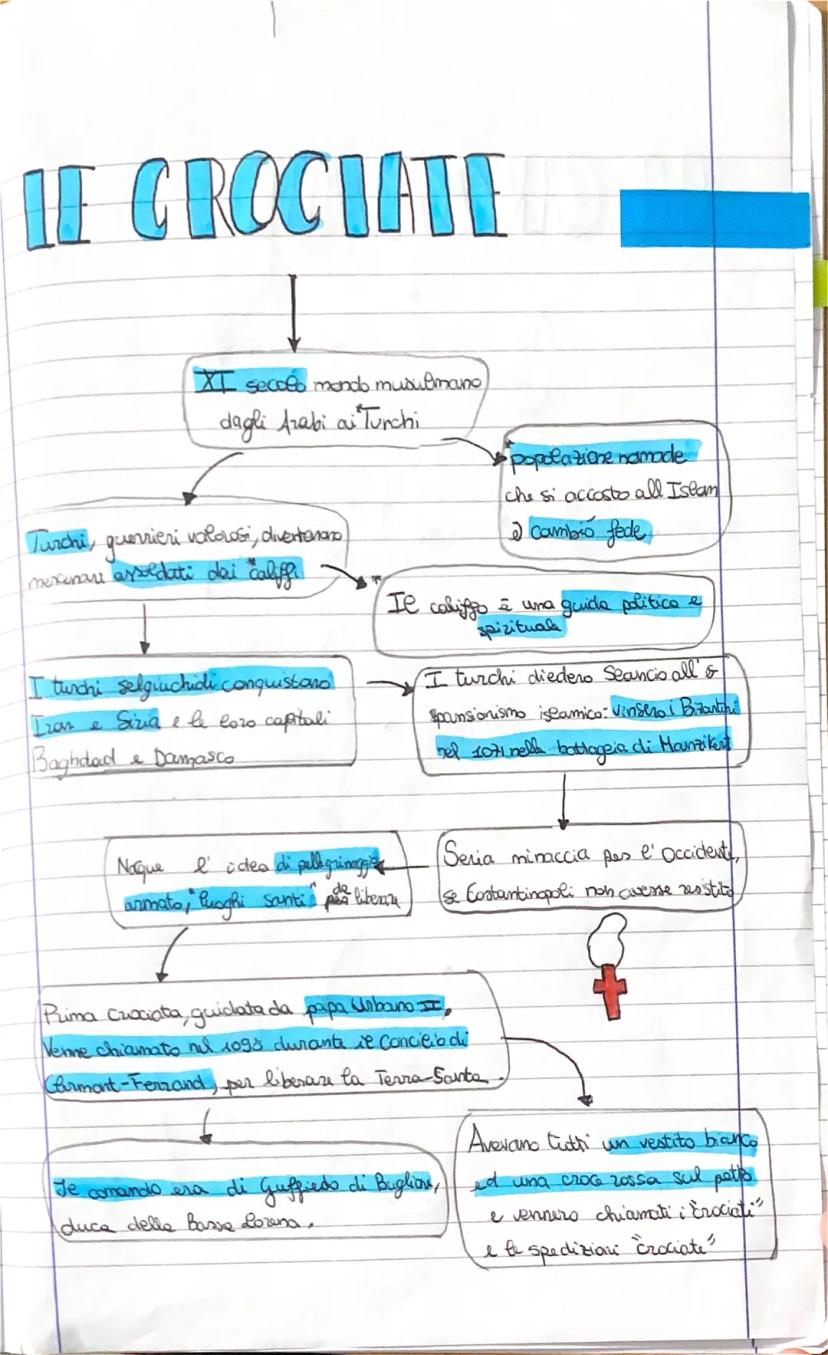 LE CROCIATE
XI secolo mondo musulmano
dagli Arabi ai *Turchi
*popolazione nomade
che si accosto all Islam
e cambiò fede
Turchi, guerrieri valorosi, diventarono
mercenari assoldati dai *califfi
*
Il califfo è una guida politica e
spirituale
I turchi selgiuchidi conquistano
Iran e Siria e le loro capitali
Baghdad e Damasco
I turchi diedero slancio all' e
spansionismo islamico: vinsero i Bizantini
nel 1071 nella battaglia di Manzikert
Seria minaccia per l' Occidente,
se Costantinopoli non avesse resistito
Naque l' idea di pellegrinaggio
armato, "luoghi santi" da liberare
Prima crociata, guidata da papa Urbano II.
Venne chiamato nel 1095 durante il Concilio di
Clermont-Ferrand, per liberare la Terra-Santa.
Avevano tutti un vestito bianco
ed una croce rossa sul petto
e vennero chiamati i "Crociati"
e le spedizioni "crociate"
Il comando era di Guffredo di Buglione,
duca della Bassa Lorena.